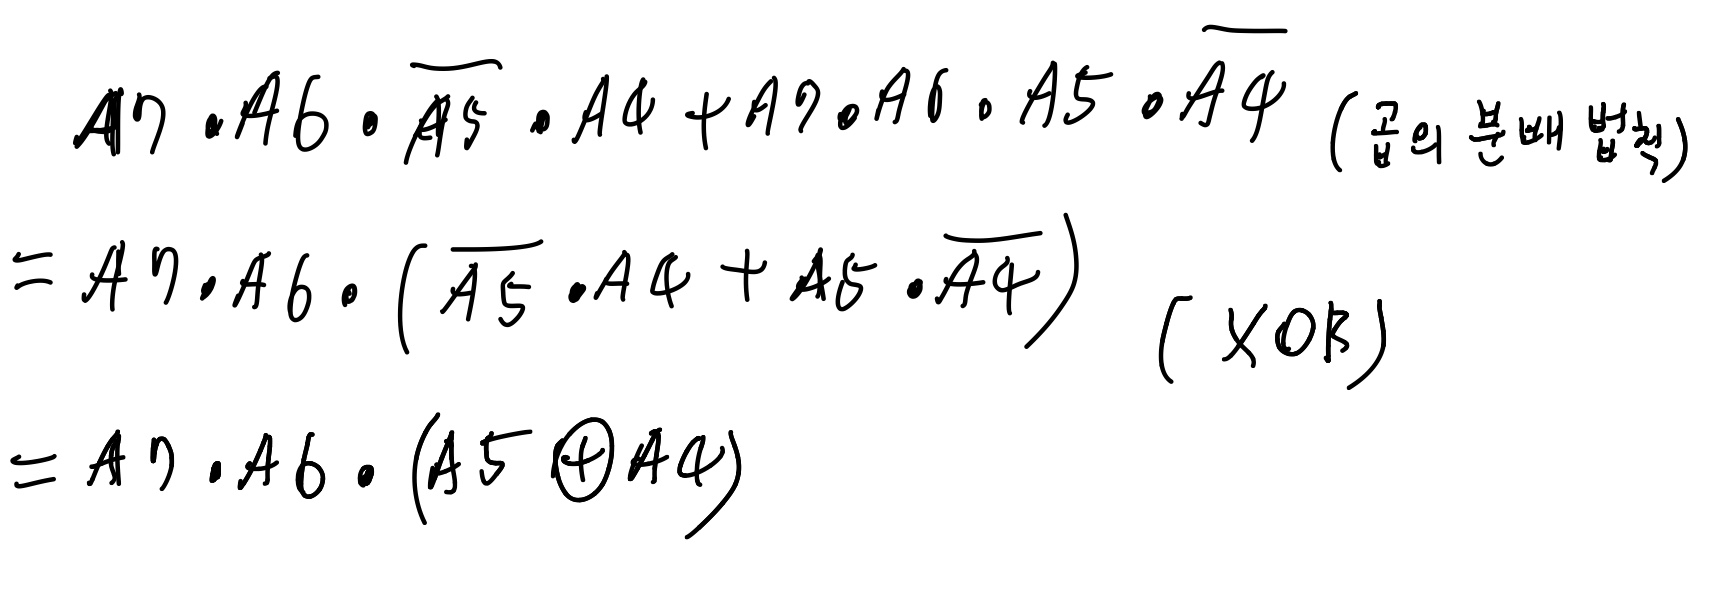 A7 · A6 · A̅5̅ · A4 + A7 · A6 · A5 · A̅4̅ (곱의 분배 법칙)
= A7 · A6 · (A̅5̅ · A4 + A5 · A̅4̅) (XOR)
= A7 · A6 · (A5 ⊕ A4)